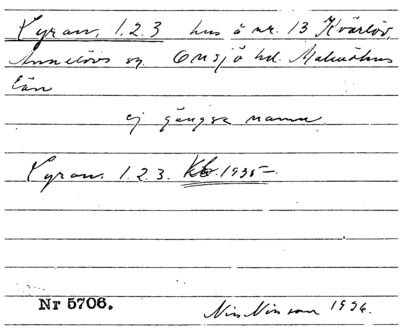 Lyran, 1.2.3 hus å nr. 13 Kvärlöv,
Annelövs sn. Onsjö hd. Malmöhus
län
ej gängse namn.
Lyran. 1.2.3. Kb. 1935–
Nr 5706.
Nils Nilsson 1936.